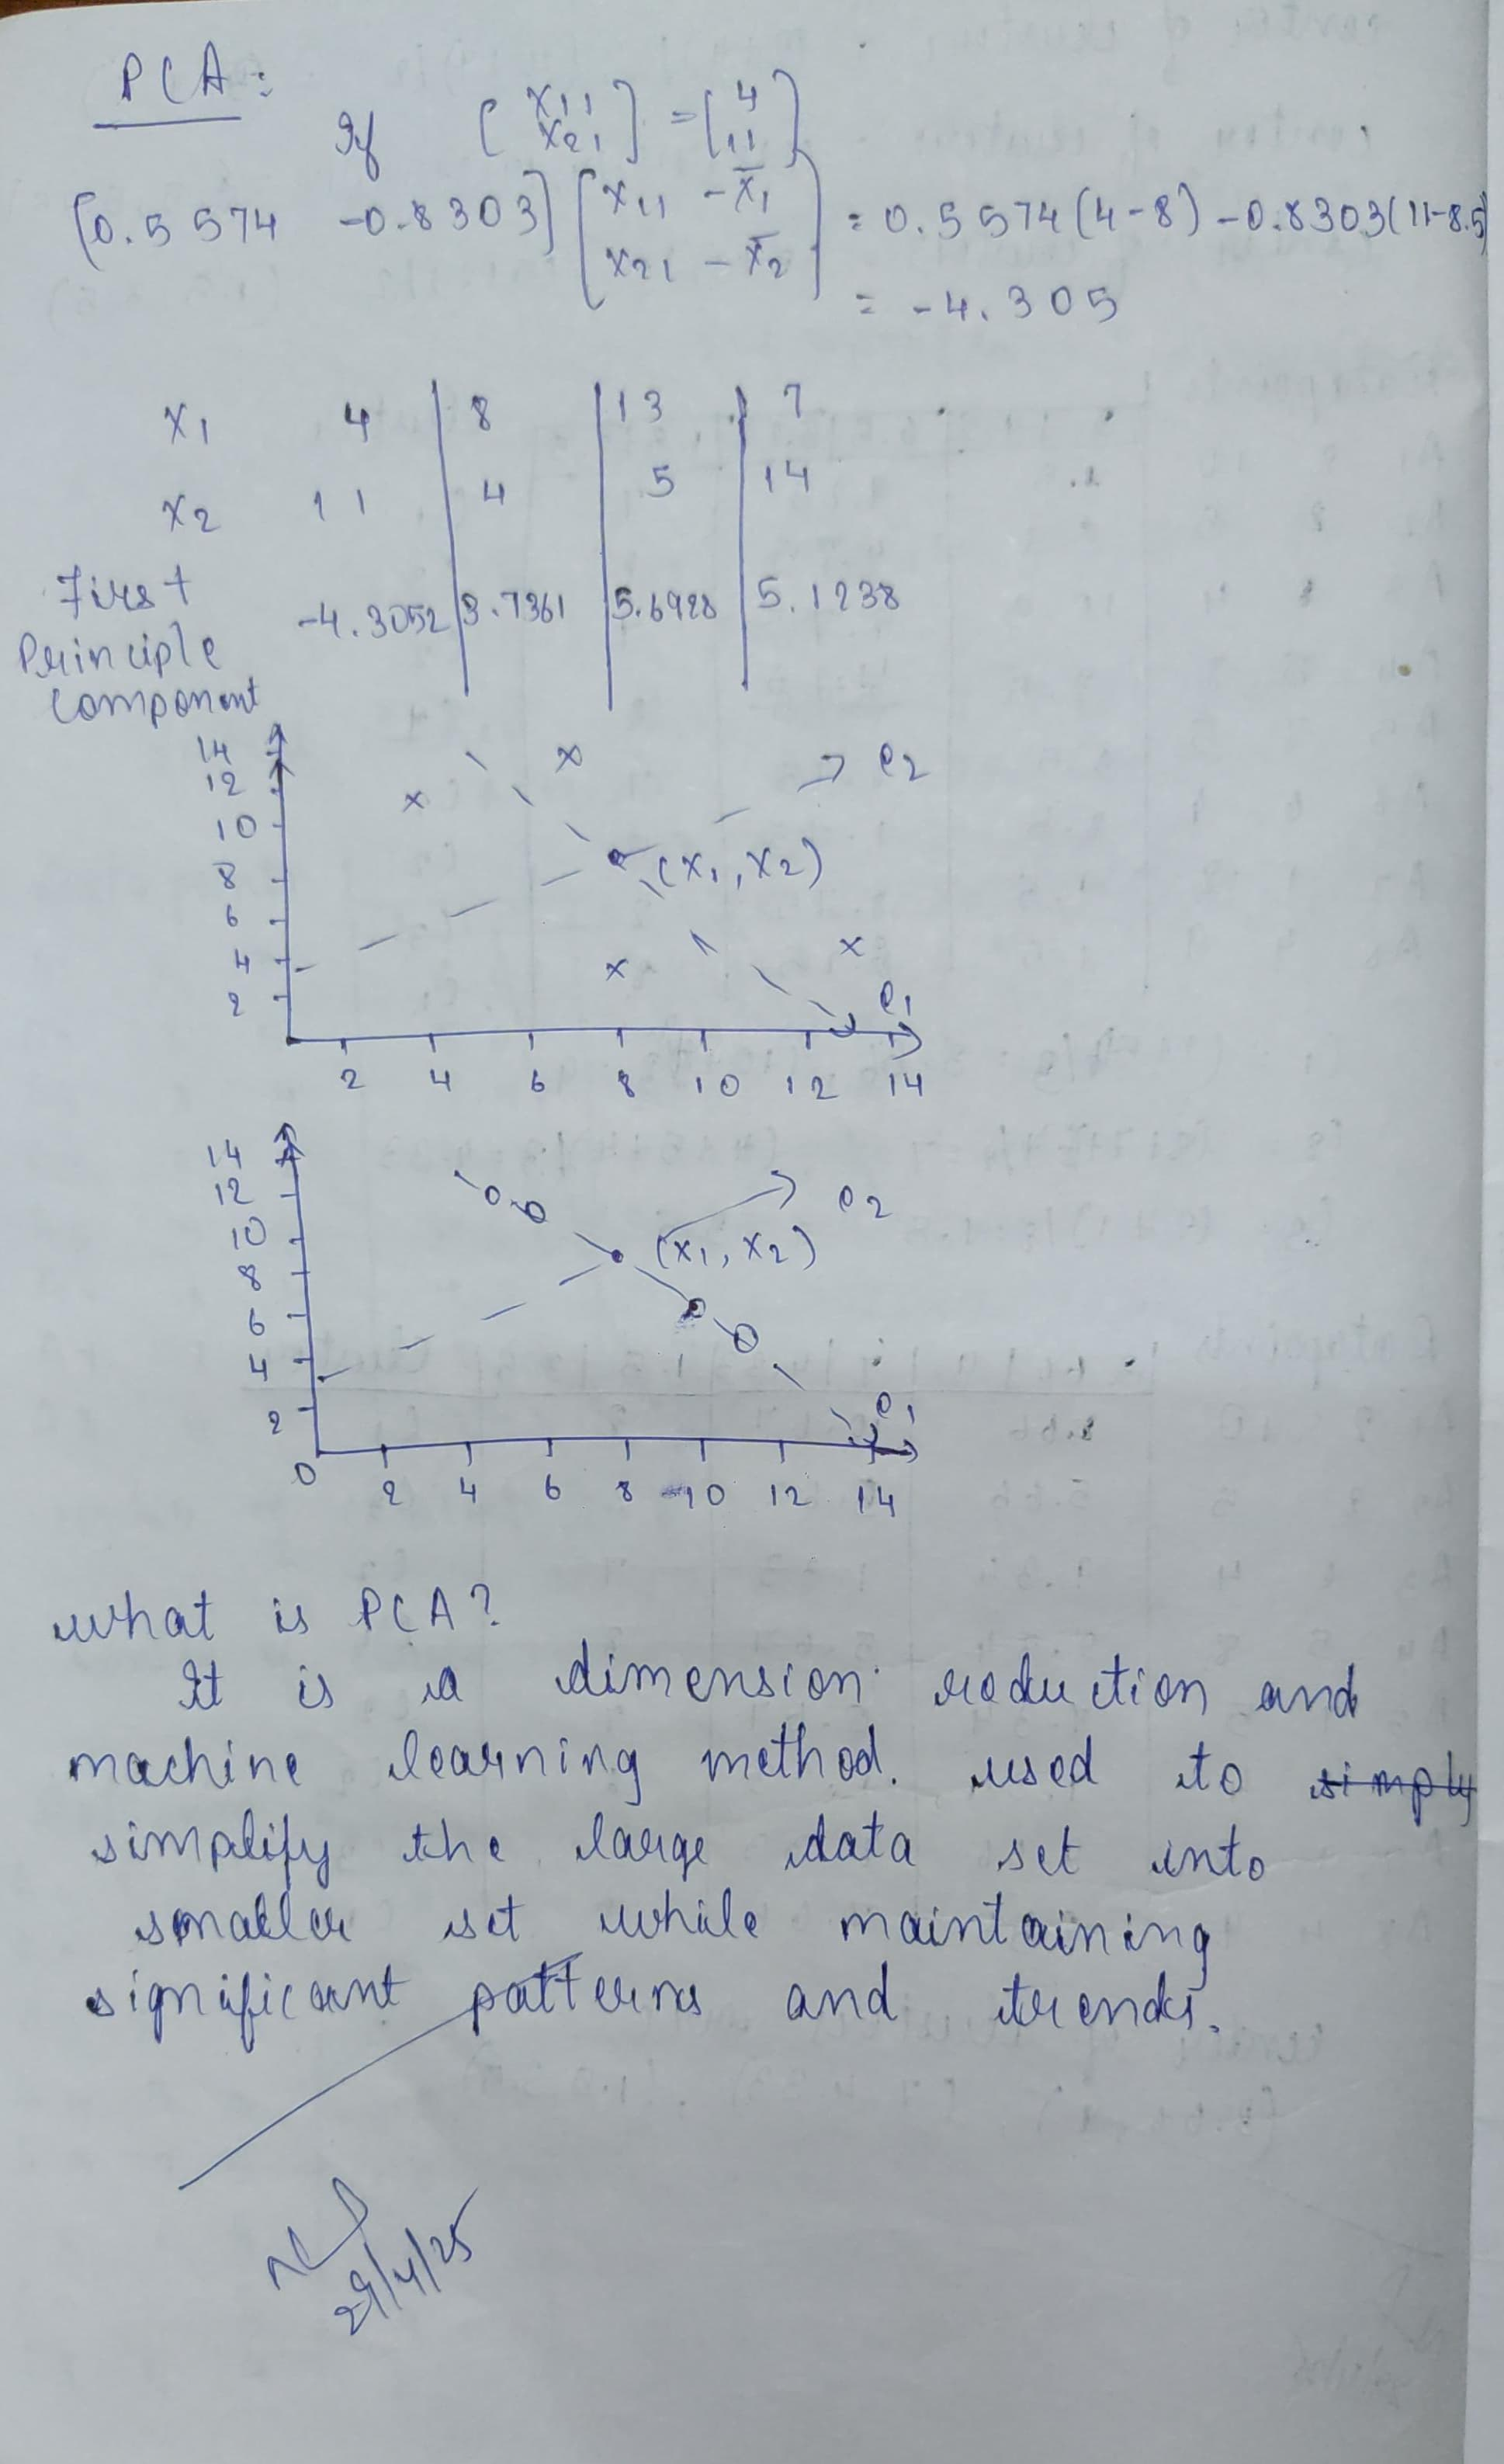 PCA:
If [x11 x21] = [4 11]
[0.5574 -0.8303] [x11 - x̄1 x21 - x̄2] = 0.5574(4-8) -0.8303(11-8.5)
= -4.305
x1 4 8 13 7
x2 11 4 5 14
First Principle component -4.3052 3.7361 5.6928 5.1238
14
12
10
8
6
4
2
e2
(x1, x2)
e1
2 4 6 8 10 12 14
14
12
10
8
6
4
2
0
e2
(x1, x2)
e1
2 4 6 8 10 12 14
what is PCA?
It is a dimension reduction and
machine learning method. used to simply
simplify the large data set into
smaller set while maintaining
significant patterns and trends.
29/4/25